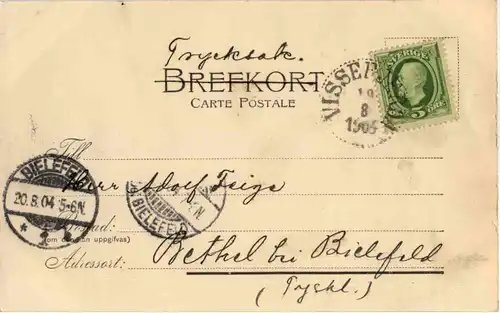 Trycksak.
BREFKORT
CARTE POSTALE
SVERIGE
5 ÖRE
19
8
Till
Herr Adolf Feige
BIELEFELD
20.8.04 5-6N.
BIELEFELD
(om den kan uppgifvas)
Bethel bei Bielefeld
Adressort:
(Tyskl.)